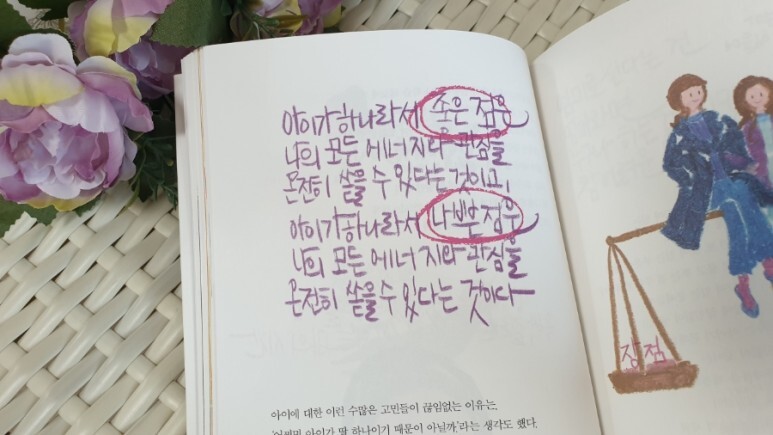 아이가 하나라서 좋은 점은
나의 모든 에너지와 관심을
온전히 쏟을 수 있다는 것이고,
아이가 하나라서 나쁜 점은
나의 모든 에너지와 관심을
온전히 쏟을 수 있다는 것이다
아이에 대한 이런 수많은 고민들이 끊임없는 이유는,
'어쩌면 아이가 딱 하나이기 때문이 아닐까.'라는 생각도 했다.
장점